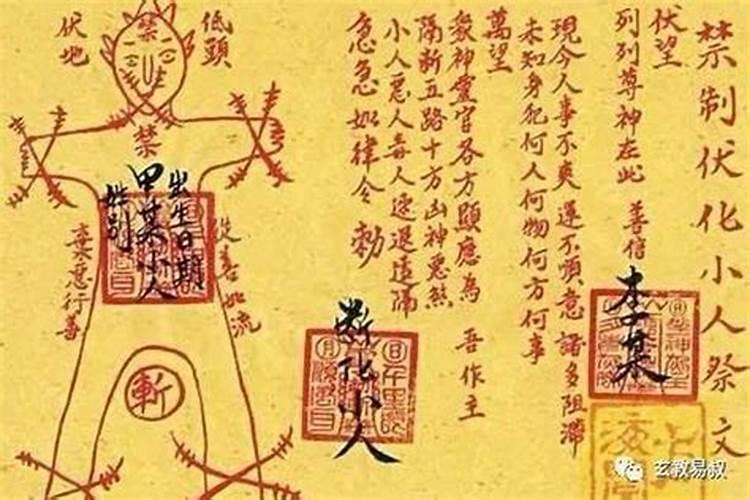 禁制伏化小人祭文
伏望
列列尊神在此 善信
李某
現今人事不爽 運不順意 諸多阻滞
未知身犯何人何物何方何事
萬望
衆神靈官各方顯應為 吾作主
隔斷五路十方凶神惡煞
小人惡人毒人速退遠隔
急急如律令 勅
斷化小人
低頭
伏地
禁
禁
出生日期
甲某小人
姓別
從善如流
棄惡行善
斬
玄教易叔